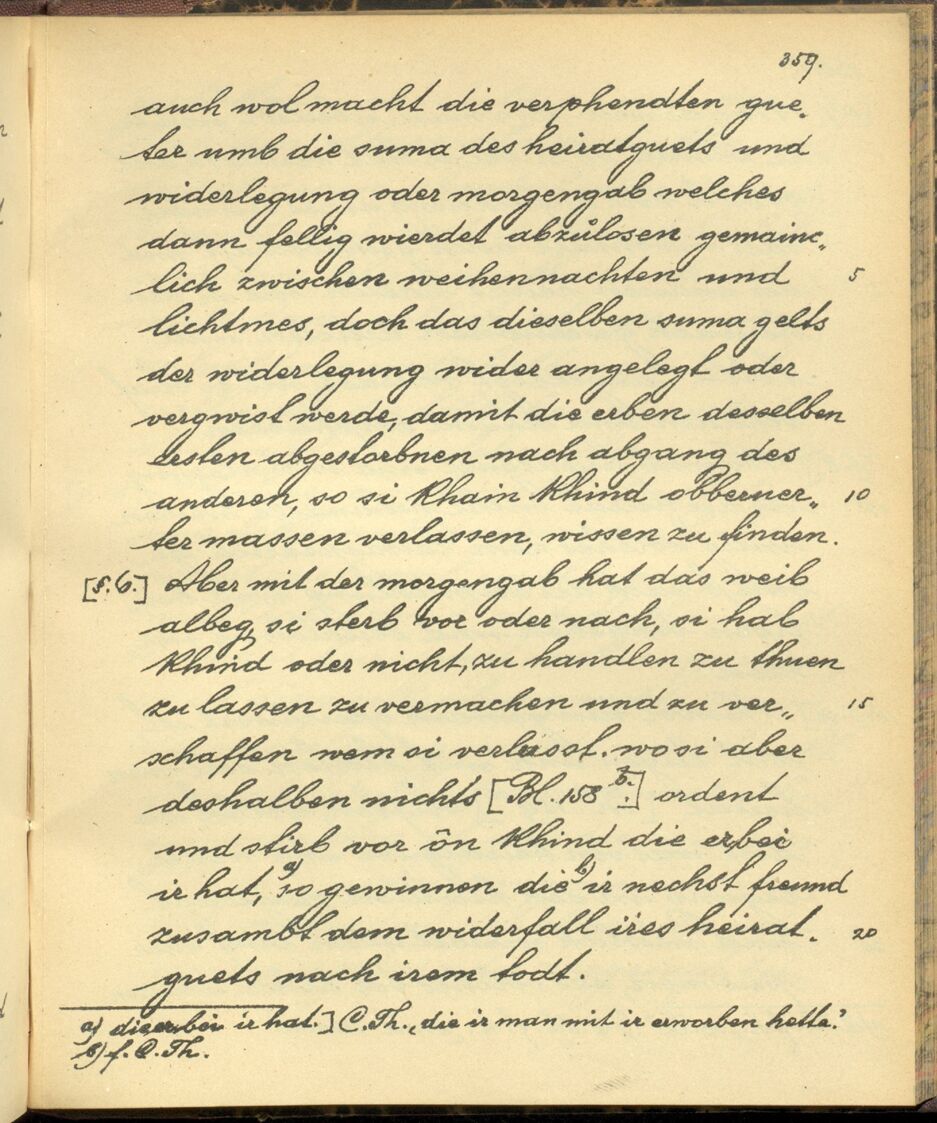 359.
auch wol macht die verphendten gue„
ter umb die suma des heiratguets und
widerlegung oder morgengab welches
dann fellig wierdet abzůlosen gemainc„
lich zwischen weihennachten und 5
lichtmes, doch das dieselben suma gelts
der widerlegung wider angelegt oder
vergwist werde, damit die erben desselben
ersten abgestorbnen nach abgang des
anderen, so si khain khind obberuer„ 10
ter massen verlassen, wissen zu finden.
[§. 6.] Aber mit der morgengab hat das weib
albeg, si sterb vor oder nach, si hab
khind oder nicht, zu handlen zu thuen
zu lassen zu vermachen und zu ver„ 15
schaffen wem si verlusst. wo si aber
deshalben nichts [Bl. 158 b.] ordent
und stirb vor ön khind die er bei
ir hat, a) so gewinnen die b) ir nechst freund
zusambt dem widerfall ires heirat„ 20
guets nach irem todt.
a) die er bei ir hat.] C. Th. „die ir man mit ir erworben hette.“
b) f. C. Th.